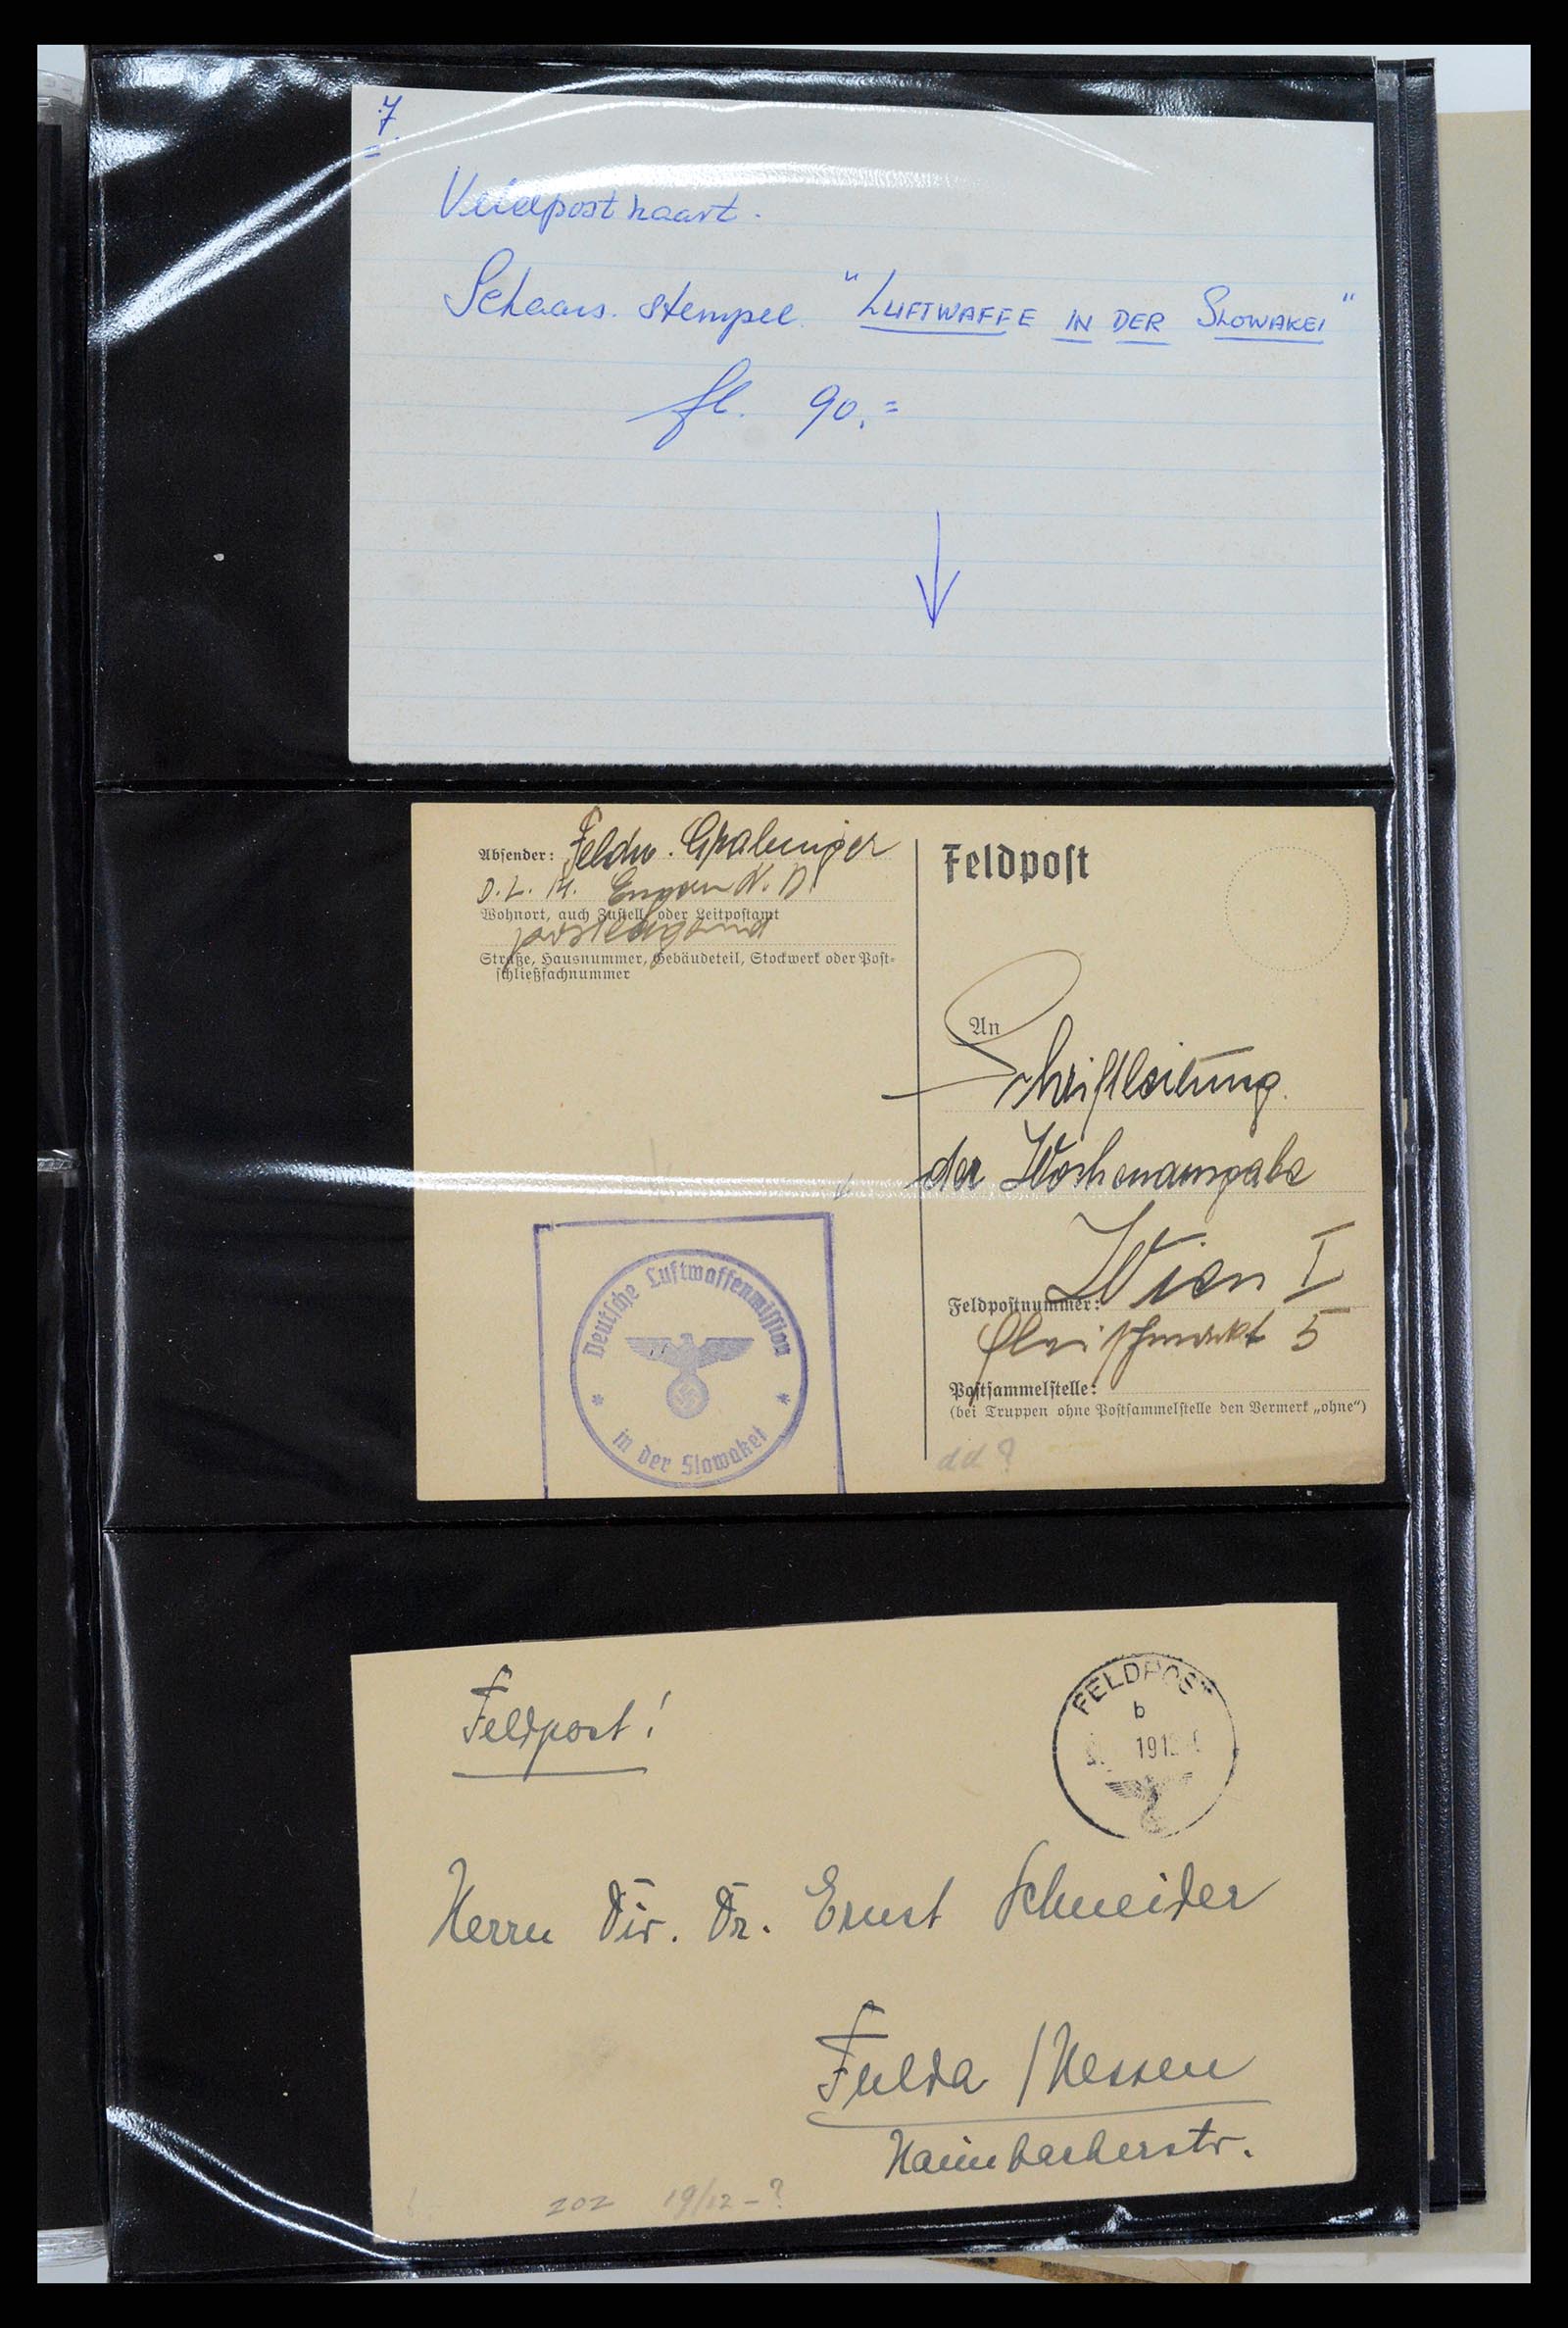 7
Veldpostkaart.
Schaars. stempel "LUFTWAFFE IN DER SLOWAKEI"
fl. 90.=
Absender: Feldw. Grabuniger
D.L.M.
Wohnort, auch Zustell- oder Leitpostamt
postlagernd
Straße, Hausnummer, Gebäudeteil, Stockwerk oder Post-
schließfachnummer
Feldpost
An
Schriftleitung
der Wochenausgabe
Wien I
Feldpostnummer:
Fleischmarkt 5
Postsammelstelle:
(bei Truppen ohne Postsammelstelle den Vermerk „ohne“)
dd ?
Deutsche Luftwaffenmission
in der Slowakei
Feldpost!
FELDPOST
b
1912
Herrn Dir. Dr. Ernst Schneider
Fulda / Hessen
Haimbacherstr.
202 19/12 - ?